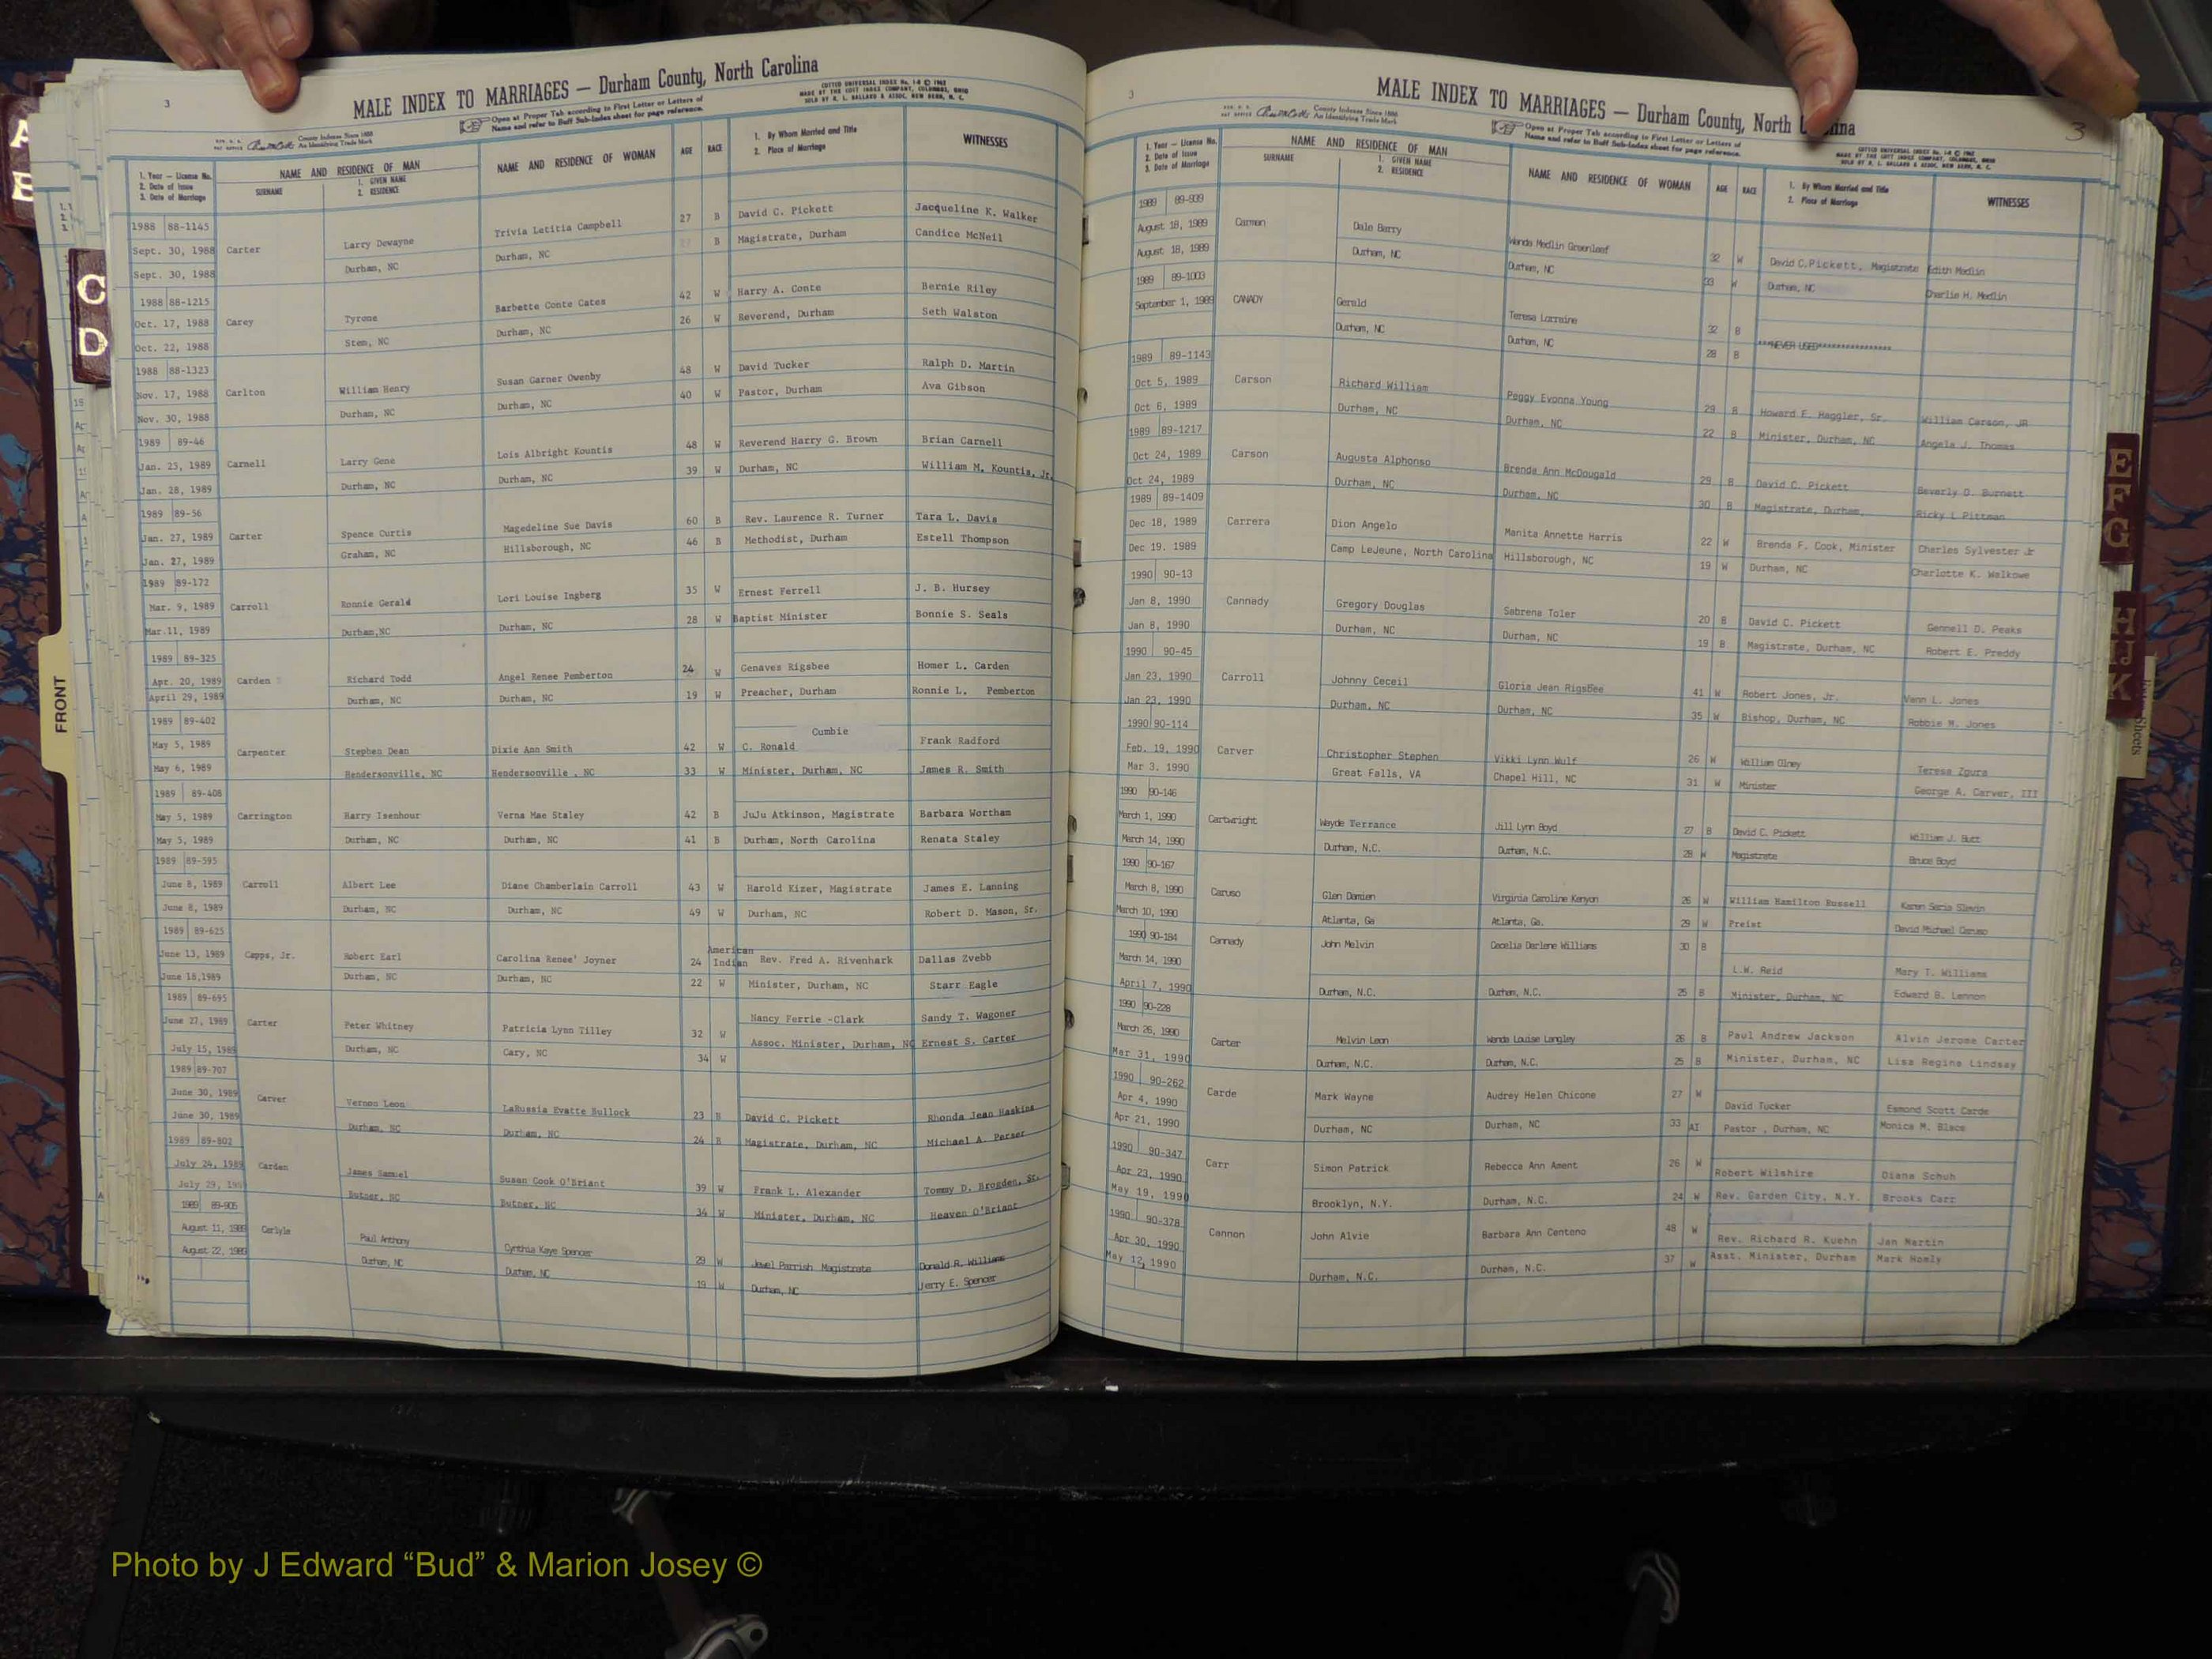 3
MALE INDEX TO MARRIAGES — Durham County, North Carolina
Open at Proper Tab according to First Letter or Letters of
Name and refer to Buff Sub-Index sheet for page reference.
COTTED UNIVERSAL INDEX No. 1-8 © 1962
MADE BY THE COTT INDEX COMPANY, COLUMBUS, OHIO
SOLD BY O. L. BALLARD & ASSOC, NEW BERN, N. C.
County Indexes Since 1888
An Identifying Trade Mark
1. Year — License No.
2. Date of Issue
3. Date of Marriage
NAME AND RESIDENCE OF MAN
SURNAME
1. GIVEN NAME
2. RESIDENCE
NAME AND RESIDENCE OF WOMAN
AGE
RACE
1. By Whom Married and Title
2. Place of Marriage
WITNESSES
1988 88-1145 Trivia Letitia Campbell 27 B David C. Pickett Jacqueline K. Walker
Sept. 30, 1988 Carter Larry Dewayne Durham, NC B Magistrate, Durham Candice McNeil
Sept. 30, 1988 Durham, NC
1988 88-1215 Barbette Conte Cates 42 W Harry A. Conte Bernie Riley
Oct. 17, 1988 Carey Tyrone Durham, NC 26 W Reverend, Durham Seth Walston
Oct. 22, 1988 Stem, NC
1988 88-1323 Susan Garner Owenby 48 W David Tucker Ralph D. Martin
Nov. 17, 1988 Carlton William Henry Durham, NC 40 W Pastor, Durham Ava Gibson
Nov. 30, 1988 Durham, NC
1989 89-46 Lois Albright Kountis 48 W Reverend Harry G. Brown Brian Carnell
Jan. 25, 1989 Carnell Larry Gene Durham, NC 39 W Durham, NC William M. Kountis, Jr.
Jan. 28, 1989 Durham, NC
1989 89-56 Magedeline Sue Davis 60 B Rev. Laurence R. Turner Tara L. Davis
Jan. 27, 1989 Carter Spence Curtis Hillsborough, NC 46 B Methodist, Durham Estell Thompson
Jan. 27, 1989 Graham, NC
1989 89-172 Lori Louise Ingberg 35 W Ernest Ferrell J. B. Hursey
Mar. 9, 1989 Carroll Ronnie Gerald Durham, NC 28 W Baptist Minister Bonnie S. Seals
Mar.11, 1989 Durham,NC
1989 89-325 Angel Renee Pemberton 24 W Genaves Rigsbee Homer L. Carden
Apr. 20, 1989 Carden Richard Todd Durham, NC 19 W Preacher, Durham Ronnie L. Pemberton
April 29, 1989 Durham, NC
1989 89-402 Cumbie
May 5, 1989 Carpenter Stephen Dean Dixie Ann Smith 42 W C. Ronald Frank Radford
May 6, 1989 Hendersonville, NC Hendersonville , NC 33 W Minister, Durham, NC James R. Smith
1989 89-408
May 5, 1989 Carrington Harry Isenhour Verna Mae Staley 42 B JuJu Atkinson, Magistrate Barbara Wortham
May 5, 1989 Durham, NC Durham, NC 41 B Durham, North Carolina Renata Staley
1989 89-595
June 8, 1989 Carroll Albert Lee Diane Chamberlain Carroll 43 W Harold Kizer, Magistrate James E. Lanning
June 8, 1989 Durham, NC Durham, NC 49 W Durham, NC Robert D. Mason, Sr.
1989 89-625
June 13, 1989 Capps, Jr. Robert Earl Carolina Renee' Joyner 24 American Indian Rev. Fred A. Rivenhark Dallas Zvebb
June 18,1989 Durham, NC Durham, NC 22 W Minister, Durham, NC Starr Eagle
1989 89-695 Nancy Ferrie -Clark Sandy T. Wagoner
June 27, 1989 Carter Peter Whitney Patricia Lynn Tilley 32 W Assoc. Minister, Durham, NC Ernest S. Carter
July 15, 1989 Durham, NC Cary, NC 34 W
1989 89-707
June 30, 1989 Carver Vernon Leon LaRussia Evatte Bullock 23 B David C. Pickett Rhonda Jean Haskins
June 30, 1989 Durham, NC Durham, NC 24 B Magistrate, Durham, NC Michael A. Perser
1989 89-802
July 24, 1989 Carden James Samuel Susan Cook O'Briant 39 W Frank L. Alexander Tommy D. Brogden, Sr.
July 29, Butner, NC Butner, NC 34 W Minister, Durham, NC Heaven O'Briant
1989 89-905
August 11, 1989 Carlyle Paul Anthony Cynthia Kaye Spencer 29 W Jewel Parrish Magistrate Donald R. Williams
August 22, 1989 Durham, NC Durham, NC 19 W Durham, NC Jerry E. Spencer
3
MALE INDEX TO MARRIAGES — Durham County, North Carolina
3
County Indexes Since 1888
An Identifying Trade Mark
Open at Proper Tab according to First Letter or Letters of
Name and refer to Buff Sub-Index sheet for page reference.
1. Year — License No.
2. Date of Issue
3. Date of Marriage
NAME AND RESIDENCE OF MAN
SURNAME
1. GIVEN NAME
2. RESIDENCE
NAME AND RESIDENCE OF WOMAN
AGE
RACE
1. By Whom Married and Title
2. Place of Marriage
WITNESSES
1989 89-939
August 18, 1989 Carmen Dale Barry Wanda Medlin Greenleef 32 W David C.Pickett, Magistrate Edith Medlin
August 18, 1989 Durham, NC Durham, NC 33 W Durham, NC Charlie H. Medlin
1989 89-1003
September 1, 1989 CANADY Gerald Teresa Lorraine 32 B
Durham, NC Durham, NC 28 B ***NEVER USED***
1989 89-1143
Oct 5, 1989 Carson Richard William Peggy Evonna Young 29 B Howard E. Haggler, Sr. William Carson, JR
Oct 6, 1989 Durham, NC Durham, NC 22 B Minister, Durham, NC Angela J. Thomas
1989 89-1217
Oct 24, 1989 Carson Augusta Alphonso Brenda Ann McDougald 29 B David C. Pickett Beverly O. Burnett
Oct 24, 1989 Durham, NC Durham, NC 30 B Magistrate, Durham, Ricky L Pittman
1989 89-1409
Dec 18, 1989 Carrera Dion Angelo Manita Annette Harris 22 W Brenda F. Cook, Minister Charles Sylvester Jr
Dec 19. 1989 Camp LeJeune, North Carolina Hillsborough, NC 19 W Durham, NC Charlotte K. Walkowe
1990 90-13
Jan 8, 1990 Cannady Gregory Douglas Sabrena Toler 20 B David C. Pickett Gennell D. Peaks
Jan 8, 1990 Durham, NC Durham, NC 19 B Magistrate, Durham, NC Robert E. Preddy
1990 90-45
Jan 23, 1990 Carroll Johnny Ceceil Gloria Jean Rigsbee 41 W Robert Jones, Jr. Vann L. Jones
Jan 23, 1990 Durham, NC Durham, NC 35 W Bishop, Durham, NC Robbie M. Jones
1990 90-114
Feb. 19, 1990 Carver Christopher Stephen Vikki Lynn Wulf 26 W William Olney Teresa Zgura
Mar 3. 1990 Great Falls, VA Chapel Hill, NC 31 W Minister George A. Carver, III
1990 90-146
March 1, 1990 Cartwright Wayde Terrance Jill Lynn Boyd 27 B David C. Pickett William J. Butt
March 14, 1990 Durham, N.C. Durham, N.C. 28 W Magistrate Bruce Boyd
1990 90-167
March 8, 1990 Caruso Glen Damien Virginia Caroline Kenyon 26 W William Hamilton Russell Karen Slavin
March 10, 1990 Atlanta, Ga Atlanta, Ga. 29 W Preist David Michael Caruso
1990 90-184 Cannady John Melvin Cecelia Darlene Williams 30 B
March 14, 1990 L.W. Reid Mary T. Williams
April 7, 1990 Durham, N.C. Durham, N.C. 25 B Minister, Durham, NC Edward B. Lennon
1990 90-228
March 26, 1990 Carter Melvin Leon Wanda Louise Langley 26 B Paul Andrew Jackson Alvin Jerome Carter
Mar 31, 1990 Durham, N.C. Durham, N.C. 25 B Minister, Durham, NC Lisa Regina Lindsay
1990 90-262 Carde Mark Wayne Audrey Helen Chicone 27 W
Apr 4, 1990 David Tucker Esmond Scott Carde
Apr 21, 1990 Durham, NC Durham, NC 33 AI Pastor , Durham, NC Monica M. Blacs
1990 90-347 Carr Simon Patrick Rebecca Ann Ament 26 W
Apr 23, 1990 Robert Wilshire Diana Schuh
May 19, 1990 Brooklyn, N.Y. Durham, N.C. 24 W Rev. Garden City, N.Y. Brooks Carr
1990 90-378 Cannon John Alvie Barbara Ann Centeno 48 W
Apr 30, 1990 Rev. Richard R. Kuehn Jan Martin
May 12, 1990 Durham, N.C. Durham, N.C. 37 W Asst. Minister, Durham Mark Homly
C
D
FRONT
E
F
G
H
IJ
K
Sheets
Photo by J Edward “Bud” & Marion Josey ©